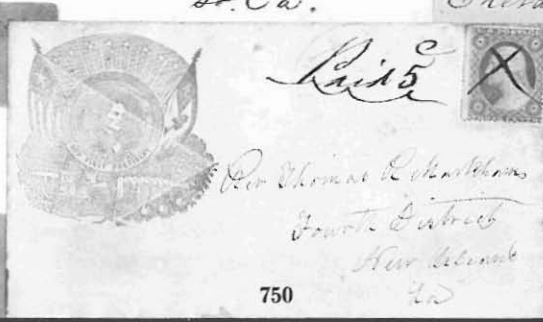 So. Ca.
Paid 5 c
Rev Thomas R Markham
Fourth District
New Orleans
La
750